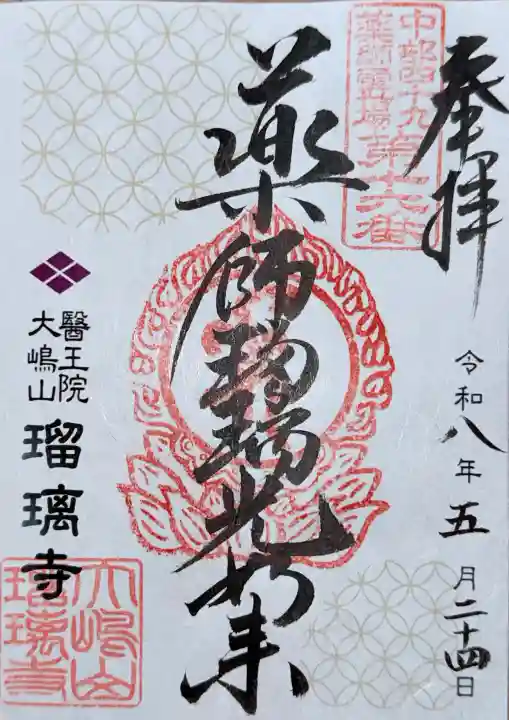 奉拝
中部四十九
薬師霊場第十六番
令和八年五月二十四日
薬師瑠璃光如来
醫王院
大嶋山
瑠璃寺
大嶋山
瑠璃寺